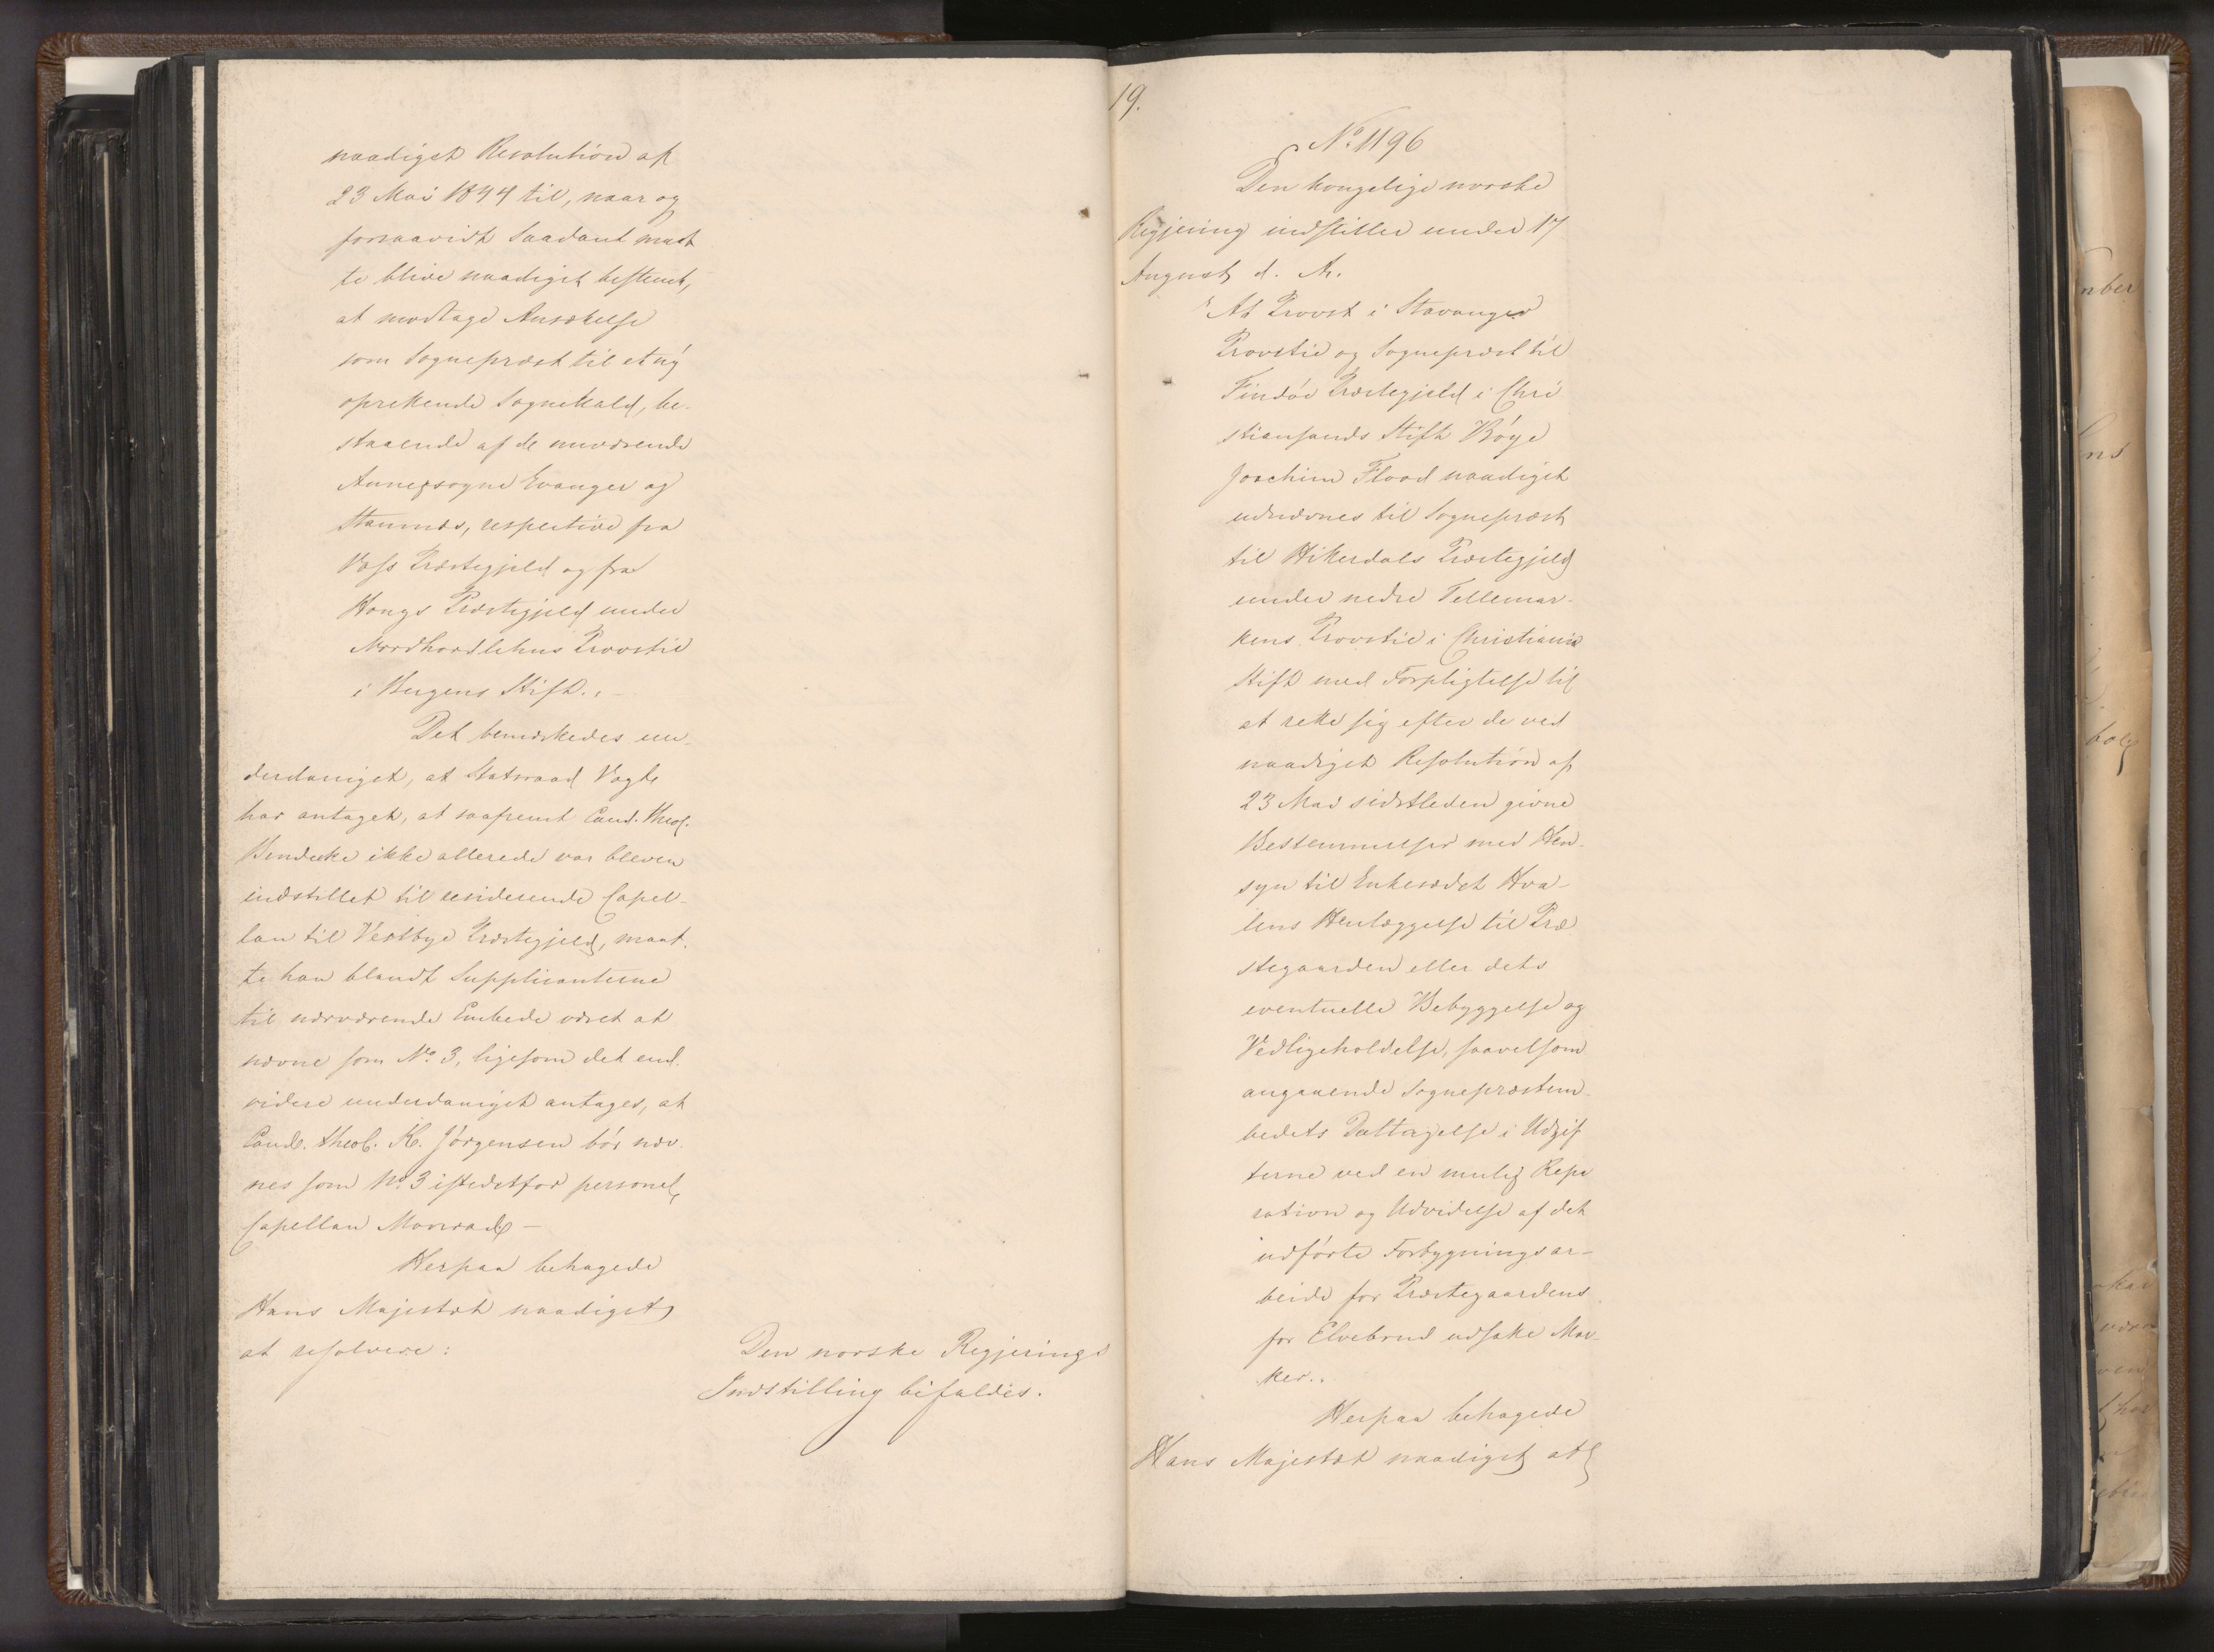 naadigst Resolution af
23 Mai 1844 til, naar og
forsaavidt Saadant maat
te blive naadigst bestemt,
at modtage Ansættelse
som Sognepræst til et nÿ
oprettende Sognekald, be-
staaende af de nuværende
Annexsogne Evanger og
Stamnæs, respective fra
Voss Præstegjeld og fra
Hougs Præstegjeld under
Nordhordlehns Provstie
i Bergens Stift." -
Det bemærkedes un-
derdanigst, at Statsraad Vogt
har antaget, at saafremt Cand. theol.
Bendeke ikke allerede var bleven
indstillet til residerende Capel-
lan til Vestbye Præstegjeld, maat-
te han blandt Supplicanterne
til nærværende Embede været at
nævne som No 3, ligesom det end-
videre underdanigst antages, at
Cand. theol. K. Jørgensen bør næv-
nes som No 3 istedetfor personel
Capellan Monrad. -
Herpaa behagede
Hans Majestæt naadigst
at resolvere:
Den norske Regjerings
Indstilling bifaldes.
19.
No 1196
Den kongelige norske
Regjering indstiller under 17
August d. A.
"At Provst i Stavanger
Provstie og Sognepræst til
Findøe Præstegjeld i Chri
stiansands Stift Bøye
Joachim Flood naadigst
udnævnes til Sognepræst
til Hitterdals Præstegjeld
under nedre Tellemar-
kens Provstie i Christiania
Stift med Forpligtelse til
at rette sig efter de ved
naadigst Resolution af
23 Mai sidstleden givne
Bestemmelser med Hen-
syn til Enkesædet Hva-
lens Henlæggelse til Præ
stegaarden eller dets
eventuelle Bebyggelse og
Vedligeholdelse, saavelsom
angaaende Sognepræstem-
bedets Deltagelse i Udgif
terne ved en mulig Repa
ration og Udvidelse af det
udførte Forbygningsar-
beide for Præstegaardens
for Elvebrud udsatte Mar-
ker."
Herpaa behagede
Hans Majestæt naadigst at